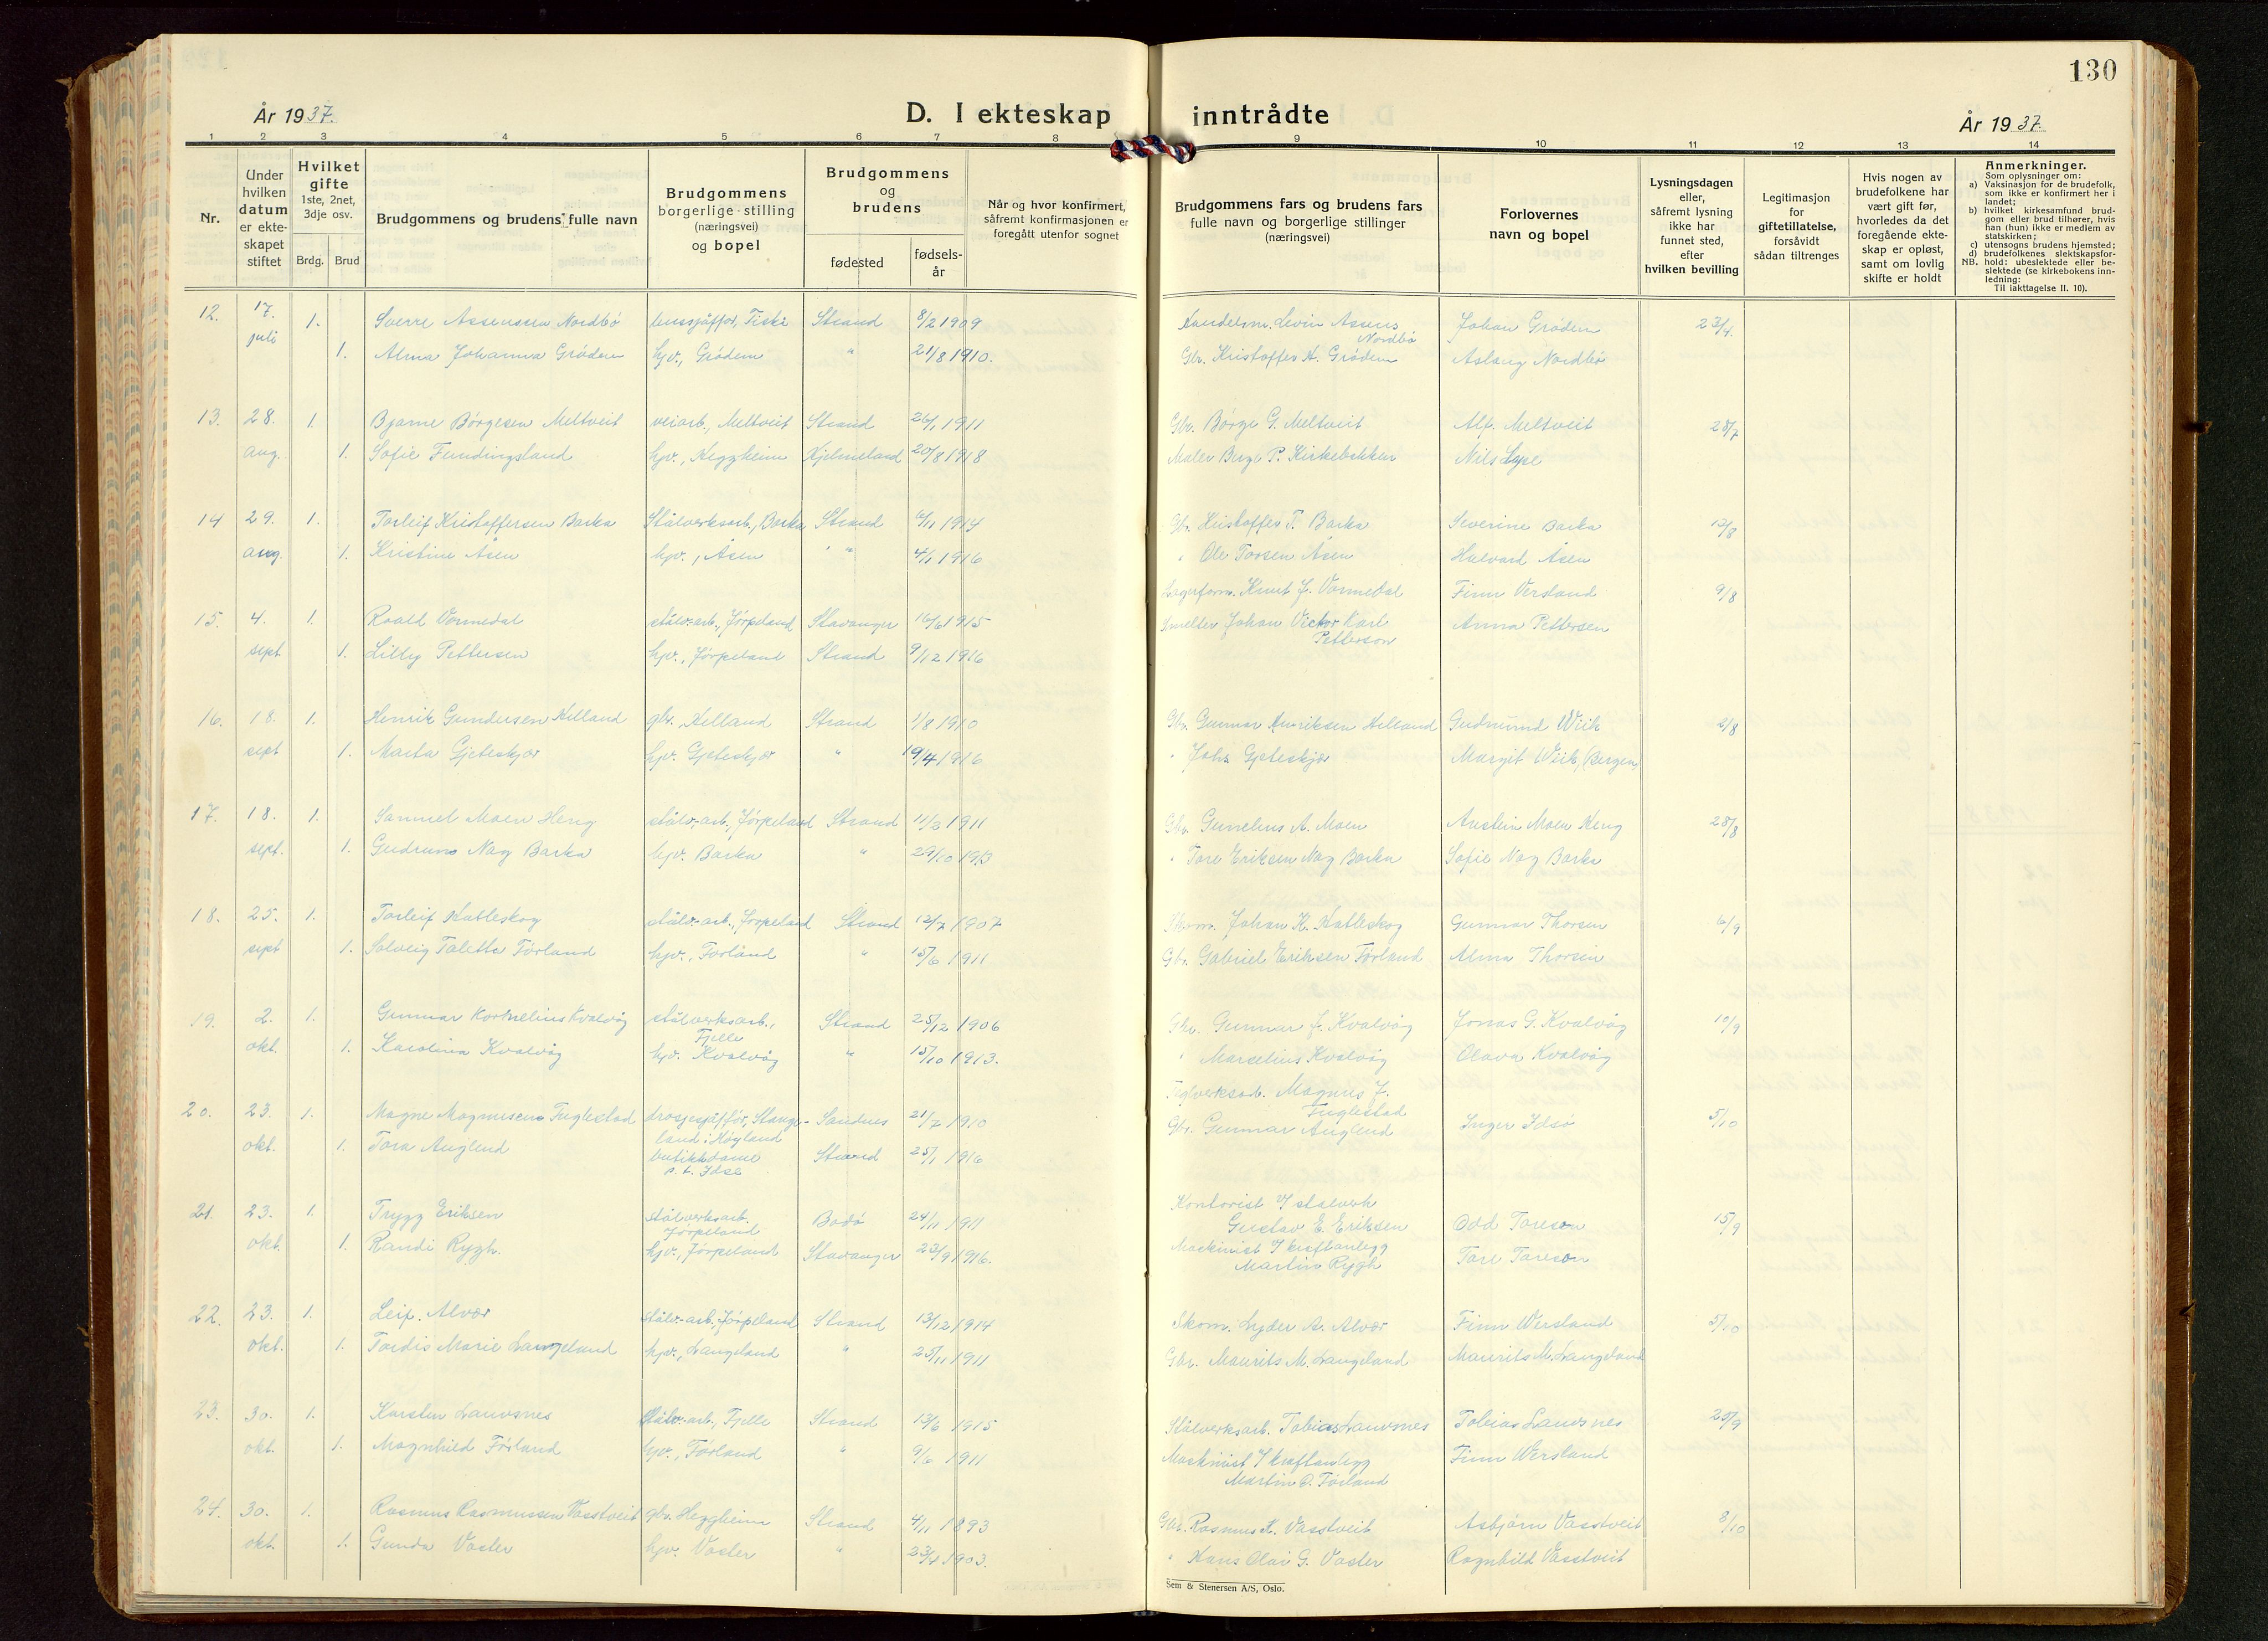 130
År 1937.
D. I ekteskap inntrådte
År 1937.
1 2 3 4 5 6 7 8 9 10 11 12 13 14
Nr.
Under hvilken datum er ekte- skapet stiftet
Hvilket gifte 1ste, 2net, 3dje osv.
Brdg. Brud
Brudgommens og brudens fulle navn
Brudgommens borgerlige stilling (næringsvei) og bopel
Brudgommens og brudens
fødested
fødsels- år
Når og hvor konfirmert, såfremt konfirmasjonen er foregått utenfor sognet
Brudgommens fars og brudens fars fulle navn og borgerlige stillinger (næringsvei)
Forlovernes navn og bopel
Lysningsdagen eller, såfremt lysning ikke har funnet sted, efter hvilken bevilling
Legitimasjon for giftetillatelse, forsåvidt sådan tiltrenges
Hvis nogen av brudefolkene har vært gift før, hvorledes da det foregående ekte- skap er opløst, samt om lovlig skifte er holdt
Anmerkninger.
Som oplysninger om:
a) Vaksinasjon for de brudefolk, som ikke er konfirmert her i landet;
b) hvilket kirkesamfund brud- gom eller brud tilhører, hvis han (hun) ikke er medlem av statskirken;
c) utensogns brudens hjemsted;
d) brudefolkenes slektskapsfor- hold: ubeslektede eller be- slektede (se kirkebokens inn- ledning:
NB. Til iakttagelse II. 10).
12. 17. 1. Sverre Assensen Nordbø Strand 8/2 1909 Handelsm. Levin Assens Nordbø Johan Grødem 23/4
juli 1. Alma Johanna Grødem hjv., Grødem " 21/8 1910. Gbr. Kristoffer A. Grødem Aslaug Nordbø
13. 28. 1. Bjarne Børgesen Meltveit veiarb., Meltveit Strand 26/1 1911 Gbr. Børge G. Meltveit Alf. Meltveit 28/7
aug. 1. Sofie Fundingsland hjv., Heggheim Hjelmeland 20/8 1918 Maler Berge P. Kirkebakken Nils Lype
14 29. 1. Torleif Kristoffersen Barka Stålverksarb., Barka Strand 1914 Gbr. Kristoffer T. Barka Severine Barka 12/8
aug. 1. Kristine Åsen hjv., Åsen " 4/1 1916 " Ole Torsen Åsen Halvard Åsen
15. 4. 1. Roald Vormedal stålv.-arb., Jørpeland Stavanger 16/6 1915 Lagerform. Knut J. Vormedal Finn Versland 9/8
sept. 1. Lilly Pettersen hjv., Jørpeland Strand 9/12 1916 Smelter Johan Victor Karl Petterson Anna Pettersen
16. 18. 1. Henrik Gundersen Helland gbr., Helland Strand 1/8 1910 Gbr. Gunnar Henriksen Helland Gudmund Wiik 2/8
sept 1. Marta Gjeteskjær hjv. Gjeteskjær " 19/4 1916 " Johs Gjeteskjær Margit Wiik, (Bergen)
17. 18. 1. Samuel Moen Heng stålv.-arb., Jørpeland Strand 11/2 1911 Gbr. Gunelius A. Moen Austein Moen Heng 28/8
sept. 1. Gudrun Nag Barka hjv. Barka " 29/10 1913 " Tore Eriksen Nag Barka Sofie Nag Barka
18. 25. 1. Torleif Hatleskog stålv.-arb., Jørpeland Strand 12/7 1907 Johan K. Hatleskog Gunnar Thorsen 6/9
sept 1. Solveig Taletta Førland hjv., Førland " 15/6 1911 Gbr. Gabriel Eriksen Førland Alma Thorsen
19. 2. 1. Gunnar Kornelius Kvalvåg stålverksarb., Fjelle Strand 25/12 1906 Gbr. Gunnar J. Kvalvåg Jonas G. Kvalvåg 10/9
okt. 1. Karolina Kvalvåg hjv. Kvalvåg " 15/10 1913. " Marselius Kvalvåg Olava Kvalvåg
20. 23. 1. Magne Magnusen Fuglestad drosjesjåfør, Stange- land i Høyland Sandnes 21/7 1910 Teglverksarb. Magnus J. Fuglestad Inger Idsø 5/10
okt. 1. Tora Auglend butikkdame p. t. Idse Strand 25/1 1916 Gbr. Gunnar Auglend
21. 23. 1. Trygg Eriksen stålverksarb. Jørpeland Bodø 24/11 1911 Kontorist v/ stålverk Gustav E. Eriksen Odd Toreson 15/9
okt. 1. Randi Rygh. hjv., Jørpeland Stavanger 23/9 1916. Maskinist v/ kraftanlegg Martin Rygh Tore Toreson
22. 23. 1. Leif. Alvær stålv.-arb. Jørpeland Strand 13/12 1914 Skom. Lyder A. Alvær Finn Wersland 5/10
okt. 1. Tordis Marie Langeland hjv., Langeland " 25/11 1911 Gbr. Maurits M. Langeland Maurits M. Langeland
23. 30. 1. Karsten Lauvsnes stålv.-arb., Fjelle Strand 13/6 1915 Stålverksarb. Tobias Lauvsnes Tobias Lauvsnes 25/9
okt. 1. Magnhild Førland hjv., Førland " 9/6 1911 Maskinist v/ kraftanlegg Martin O. Førland Finn Wersland
24. 30. 1. Rasmus Rasmussen Vasstveit gbr. Heggheim Strand 4/11 1893 Gbr. Rasmus K. Vasstveit Asbjørn Vasstveit 8/10
okt. 1. Gunda Voster hjv. Voster " 23/4 1903. " Hans Olai G. Voster Ragnhild Vasstveit
Sem & Stenersen A/S, Oslo.